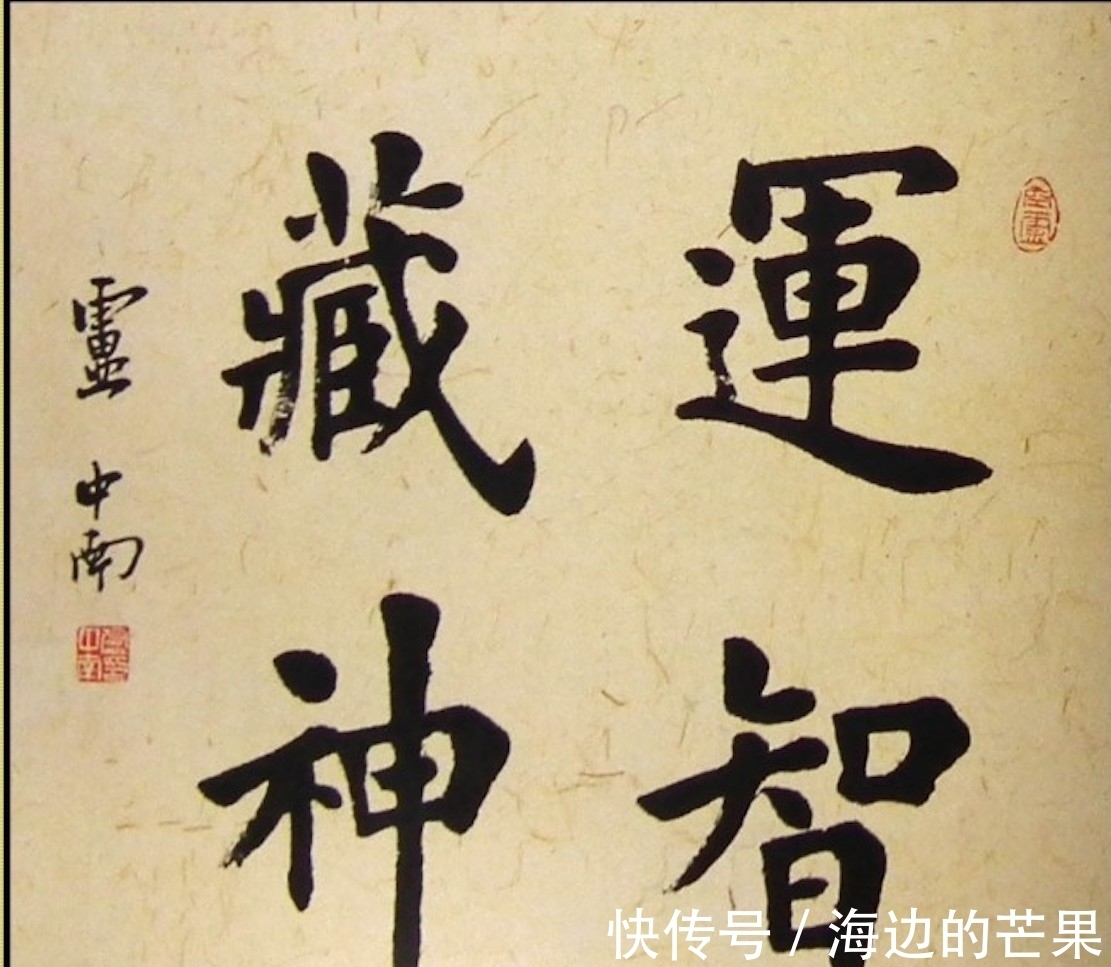 運智
藏神
盧中南
快传号 / 海边的芒果